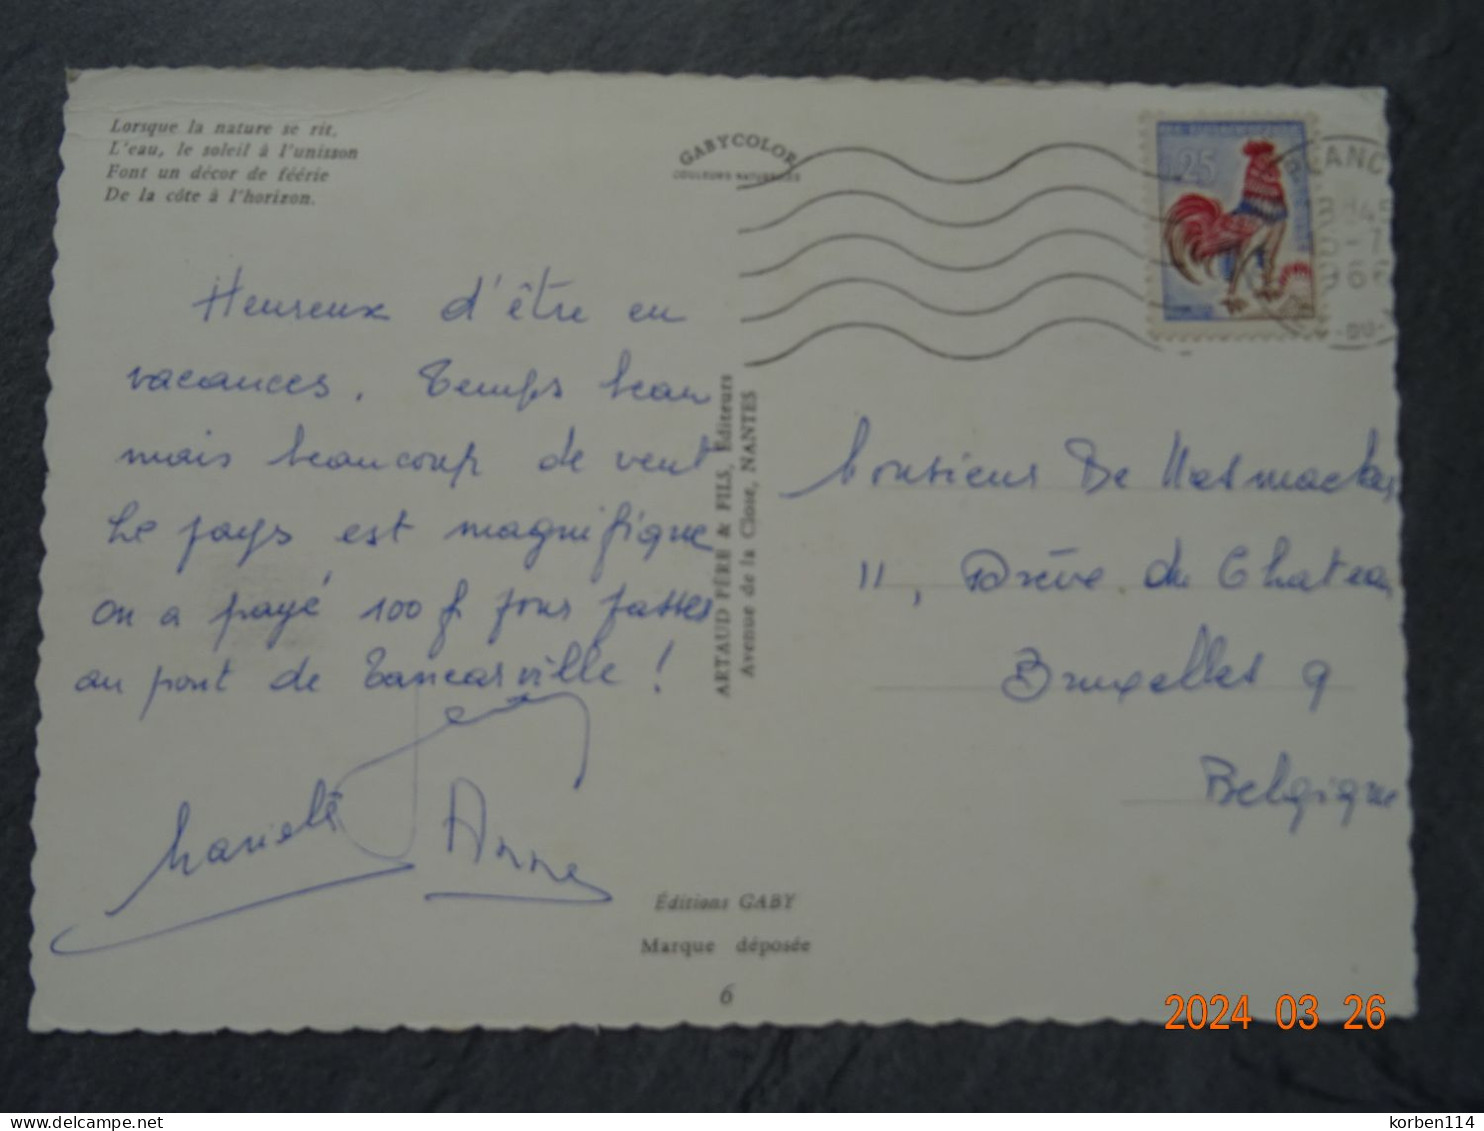 Lorsque la nature se rit,
L'eau, le soleil à l'unisson
Font un décor de féérie
De la côte à l'horizon.
GABYCOLOR
COULEURS NATURELLES
25
Heureux d'être en
vacances. Temps beau
mais beaucoup de vent
Le pays est magnifique
on a payé 100 f pour passer
au pont de Tancarville !
Anne
ARTAUD PÈRE & FILS, Éditeurs
Avenue de la Close, NANTES
Monsieur De
11, Drève du Chateau
Bruxelles 9
Belgique
Éditions GABY
Marque déposée
6
2024 03 26
delcampe.net
korben114